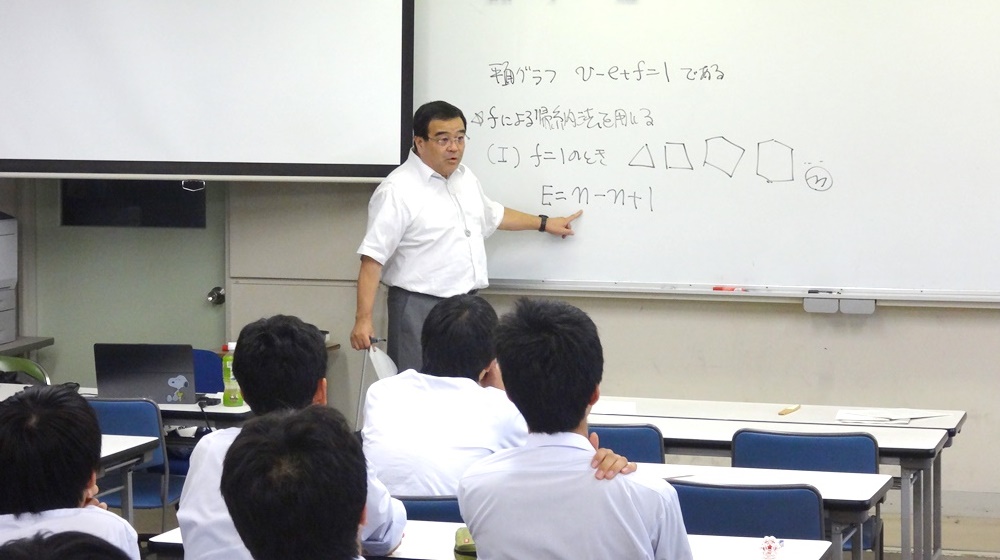 平面グラフ v-e+f=1 である
fによる帰納法を用いる
(I) f=1のとき … n
E=n-n+1